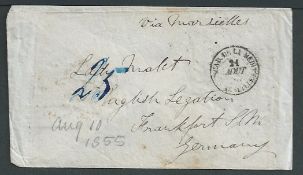 via Marseilles
Lady Malet
25
English Legation
Frankfort S/M.
Germany
Aug 10
1855
21
AOUT